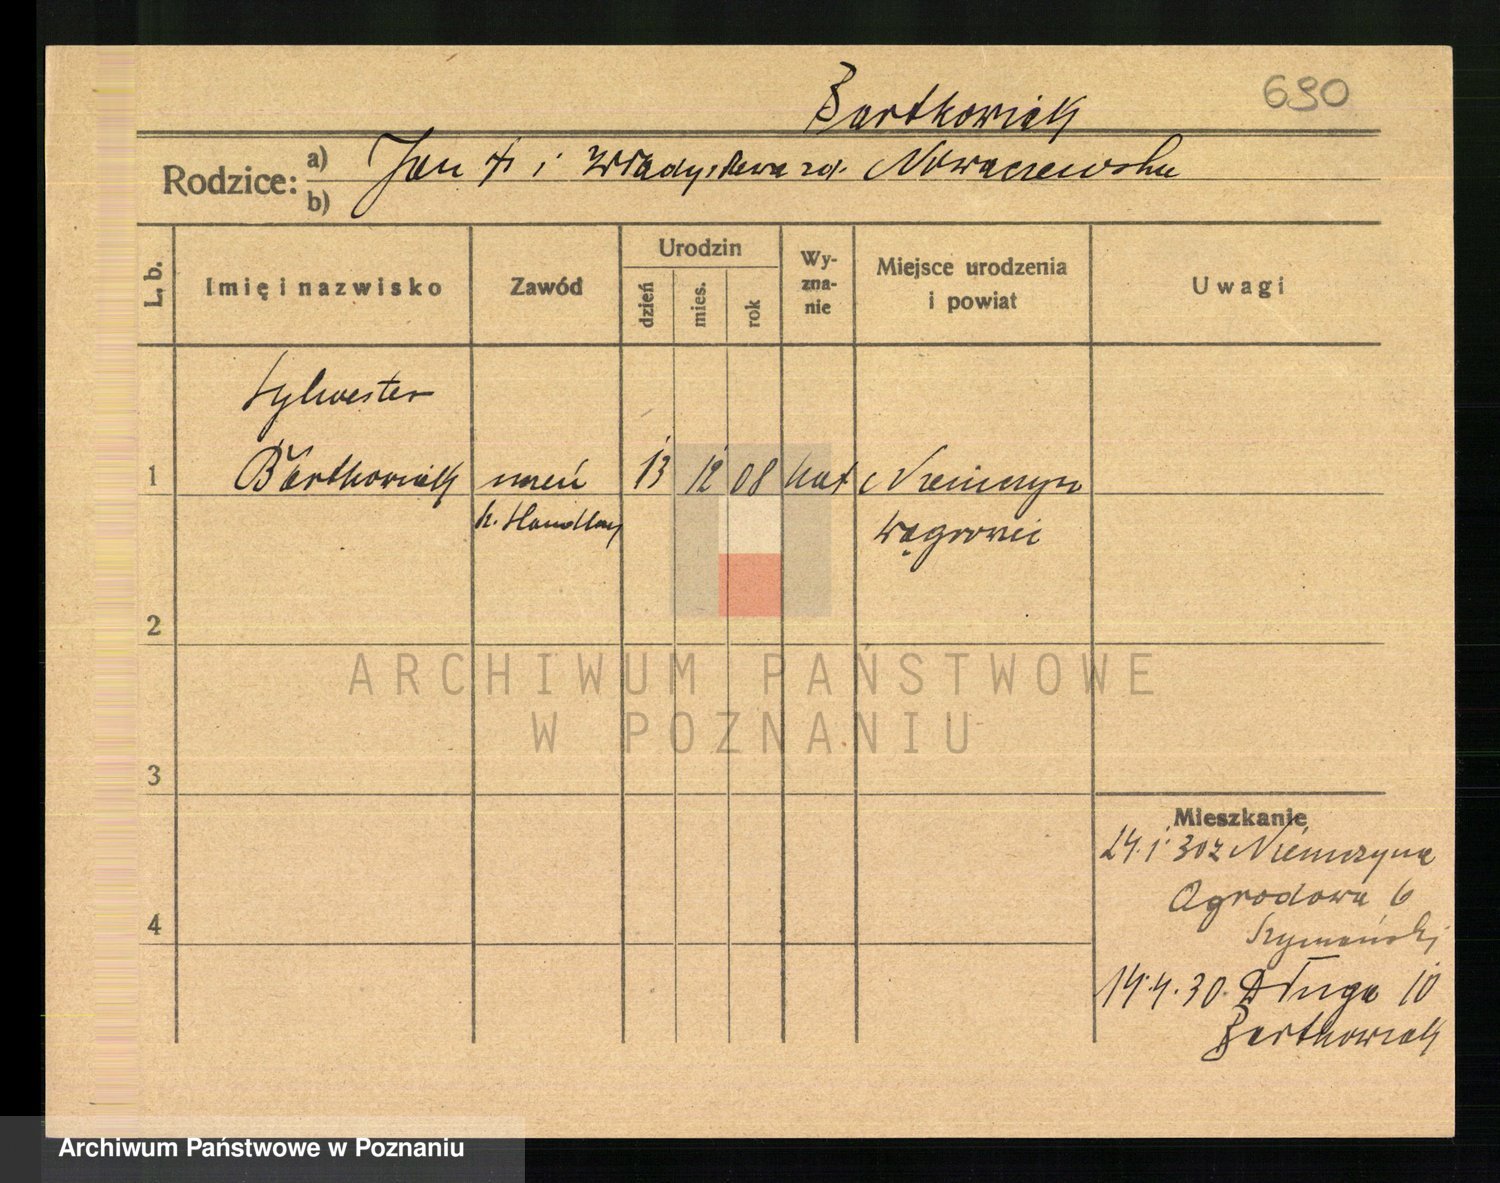 690
Bartkowiak
Rodzice: a) Jan † i Władysława zd. Nowaczewska
b)
L. b.
Imię i nazwisko
Zawód
Urodzin
dzień
mies.
rok
Wy-
zna-
nie
Miejsce urodzenia
i powiat
Uwagi
Sylwester
1 Bartkowiak uczeń 13 12 08 kat Niemczyn
k. Handlow
Wągrowiec
2
3
4
Mieszkanie
24.1.30 z Niemczyna
Ogrodowa 6
Szymański
14.4.30. Długa 10
Bartkowiak
ARCHIWUM PAŃSTWOWE
W POZNANIU
Archiwum Państwowe w Poznaniu